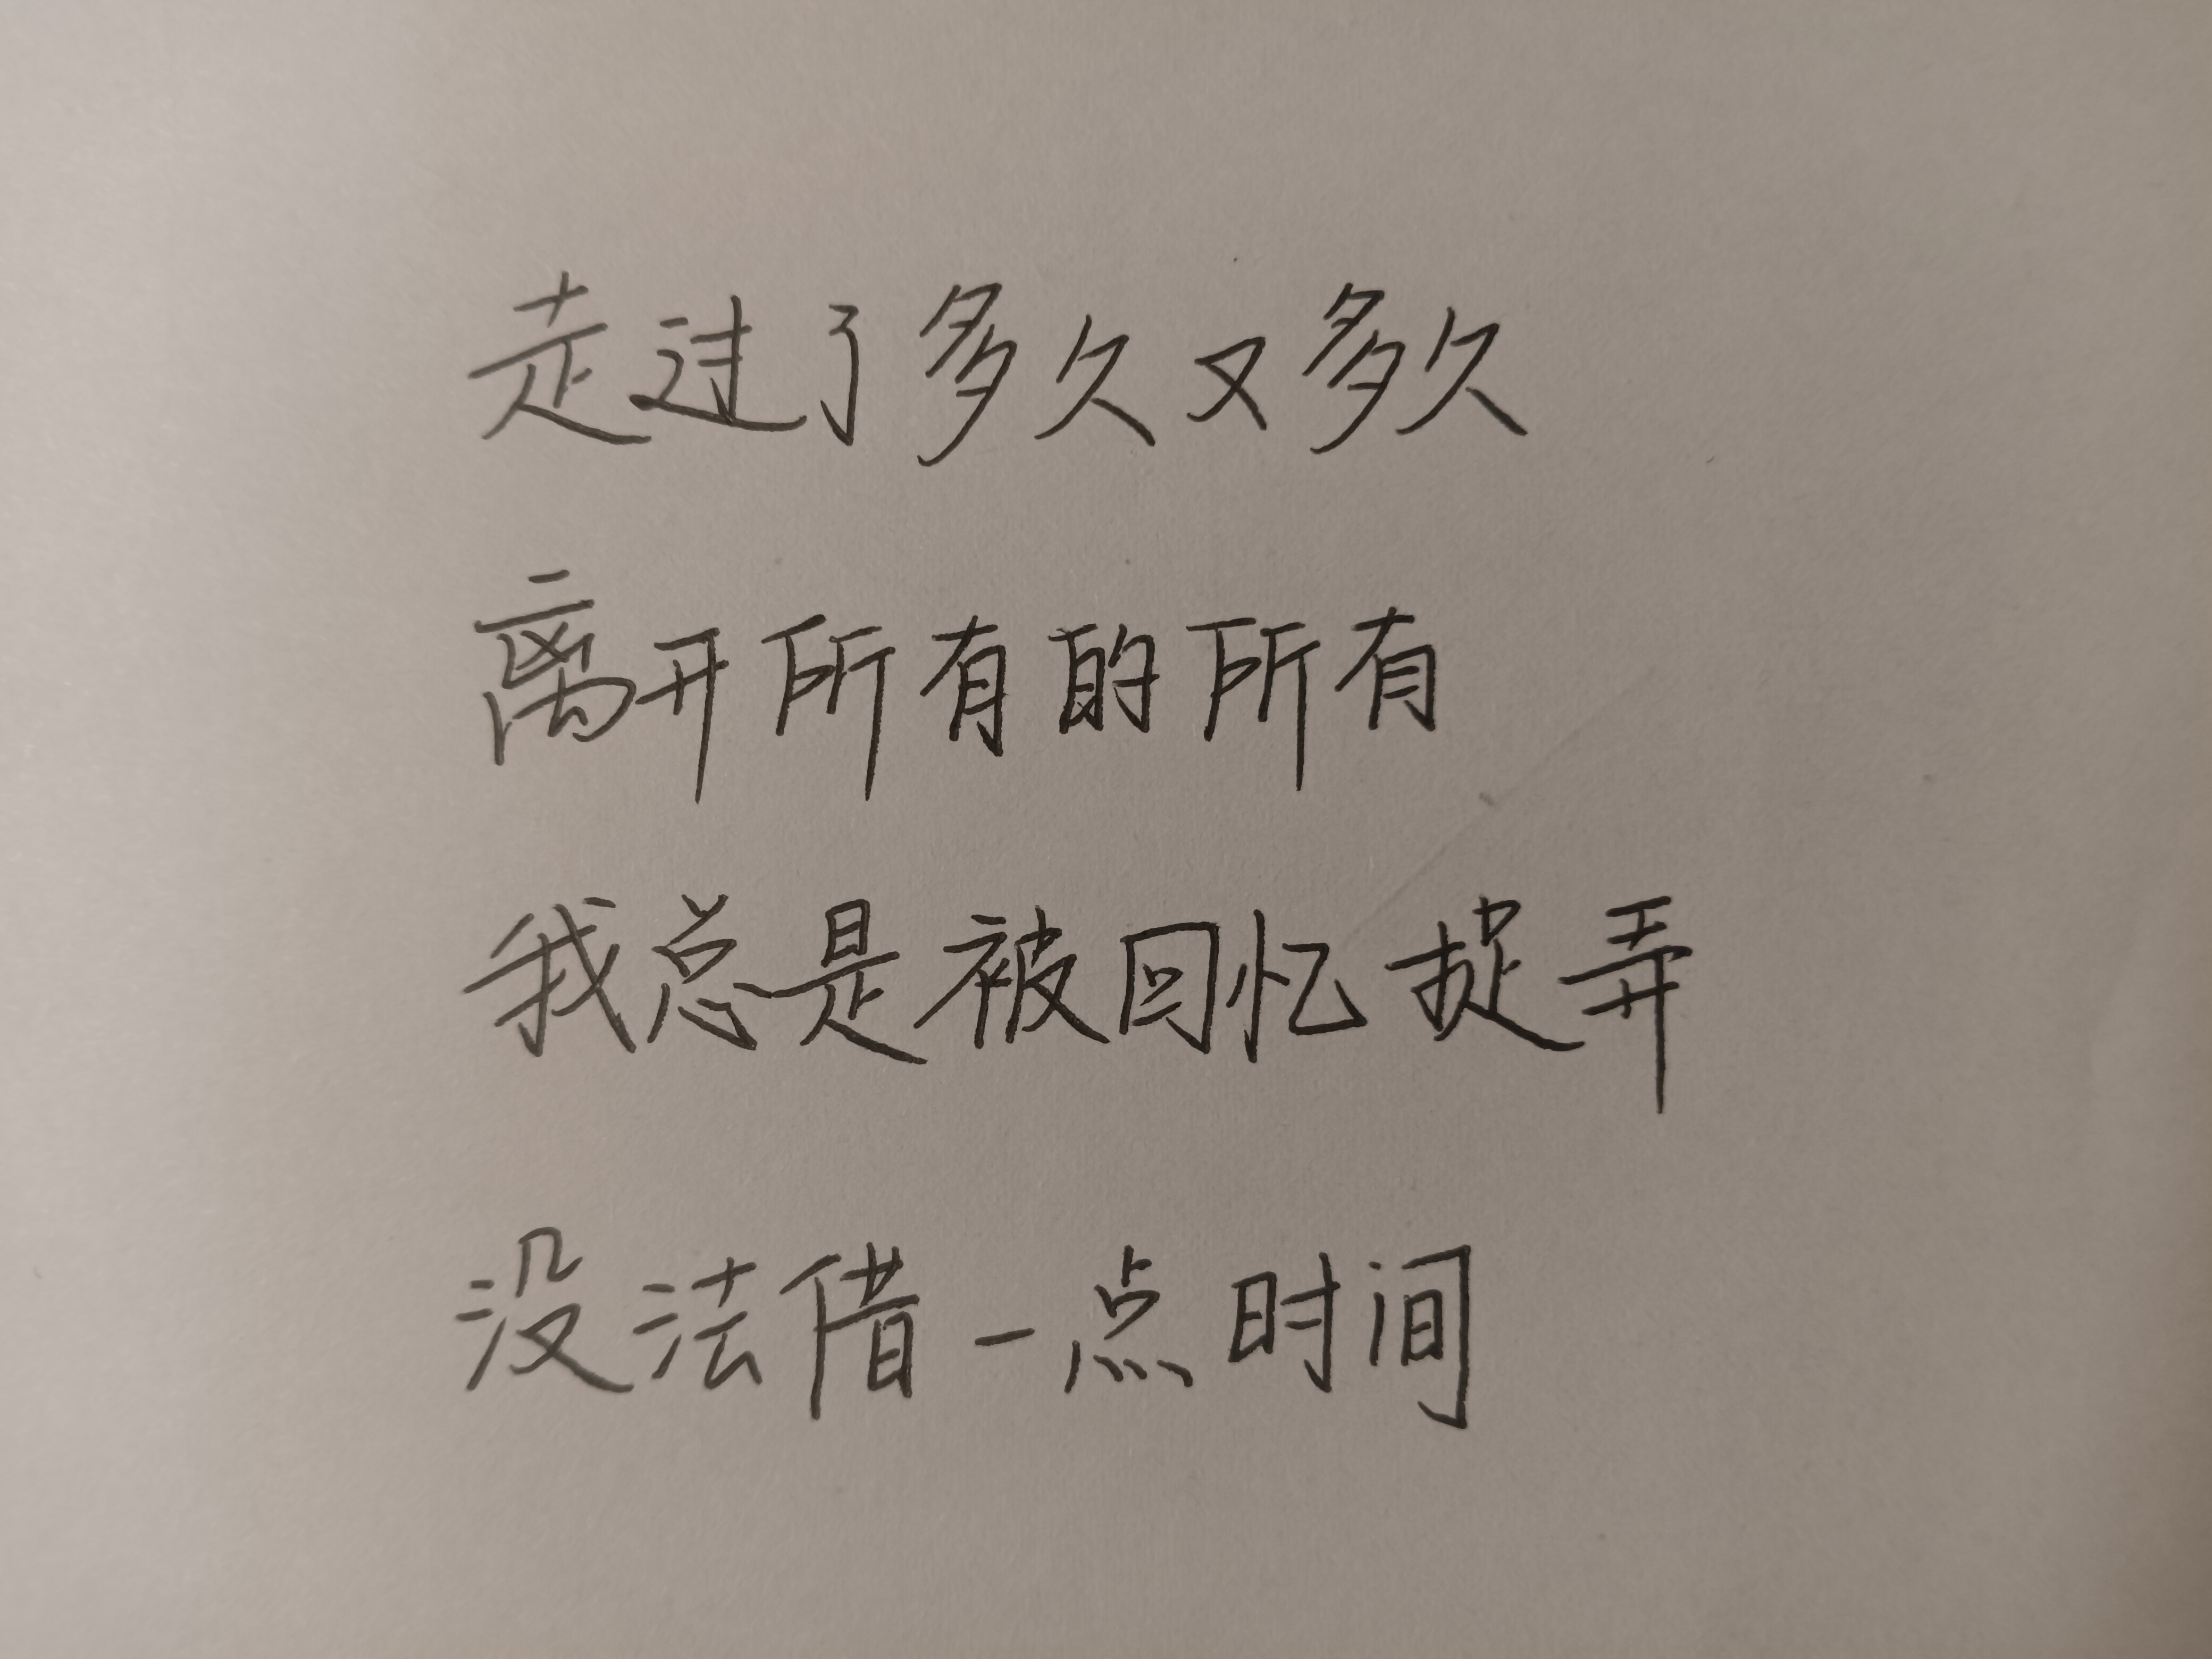 走过了多久又多久
离开所有的所有
我总是被回忆捉弄
没法借一点时间